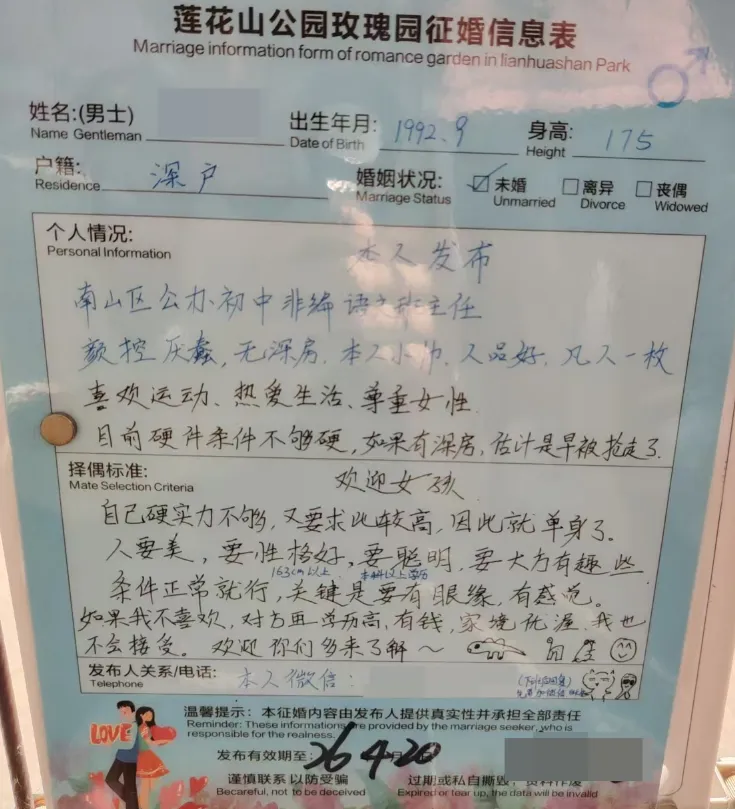 莲花山公园玫瑰园征婚信息表
Marriage information form of romance garden in lianhuashan Park
姓名:(男士) 出生年月: 1992.9 身高: 175
Name Gentleman Date of Birth Height
户籍: 深户 婚姻状况: ☑未婚 □离异 □丧偶
Residence Marriage Status Unmarried Divorce Widowed
个人情况: 本人发布
Personal Information
南山区公办初中非编语文班主任
颜控厌蠢,无深房.本人小帅.人品好.凡人一枚
喜欢运动、热爱生活、尊重女性.
目前硬件条件不够硬,如果有深房,估计是早被抢走了.
择偶标准: 欢迎女孩
Mate Selection Criteria
自己硬实力不够,又要求比较高,因此就单身了。
人要美,要性格好,要聪明,要大方有趣些.
163cm以上 本科以上学历
条件正常就行,关键是要有眼缘,有感觉。
如果我不喜欢,对方再学历高,有钱,家境优渥,我也
不会接受。欢迎你们多来了解～
发布人关系/电话: 本人微信:
Telephone
LOVE
温馨提示:本征婚内容由发布人提供真实性并承担全部责任
Reminder: These informations are provided by the marriage seeker, who is
responsible for the realness.
发布有效期至: 26 4月20
谨慎联系以防受骗 过期或私自撕毁,资料作废
Becareful, not to be deceived Expired or tear up, the data will be invalid